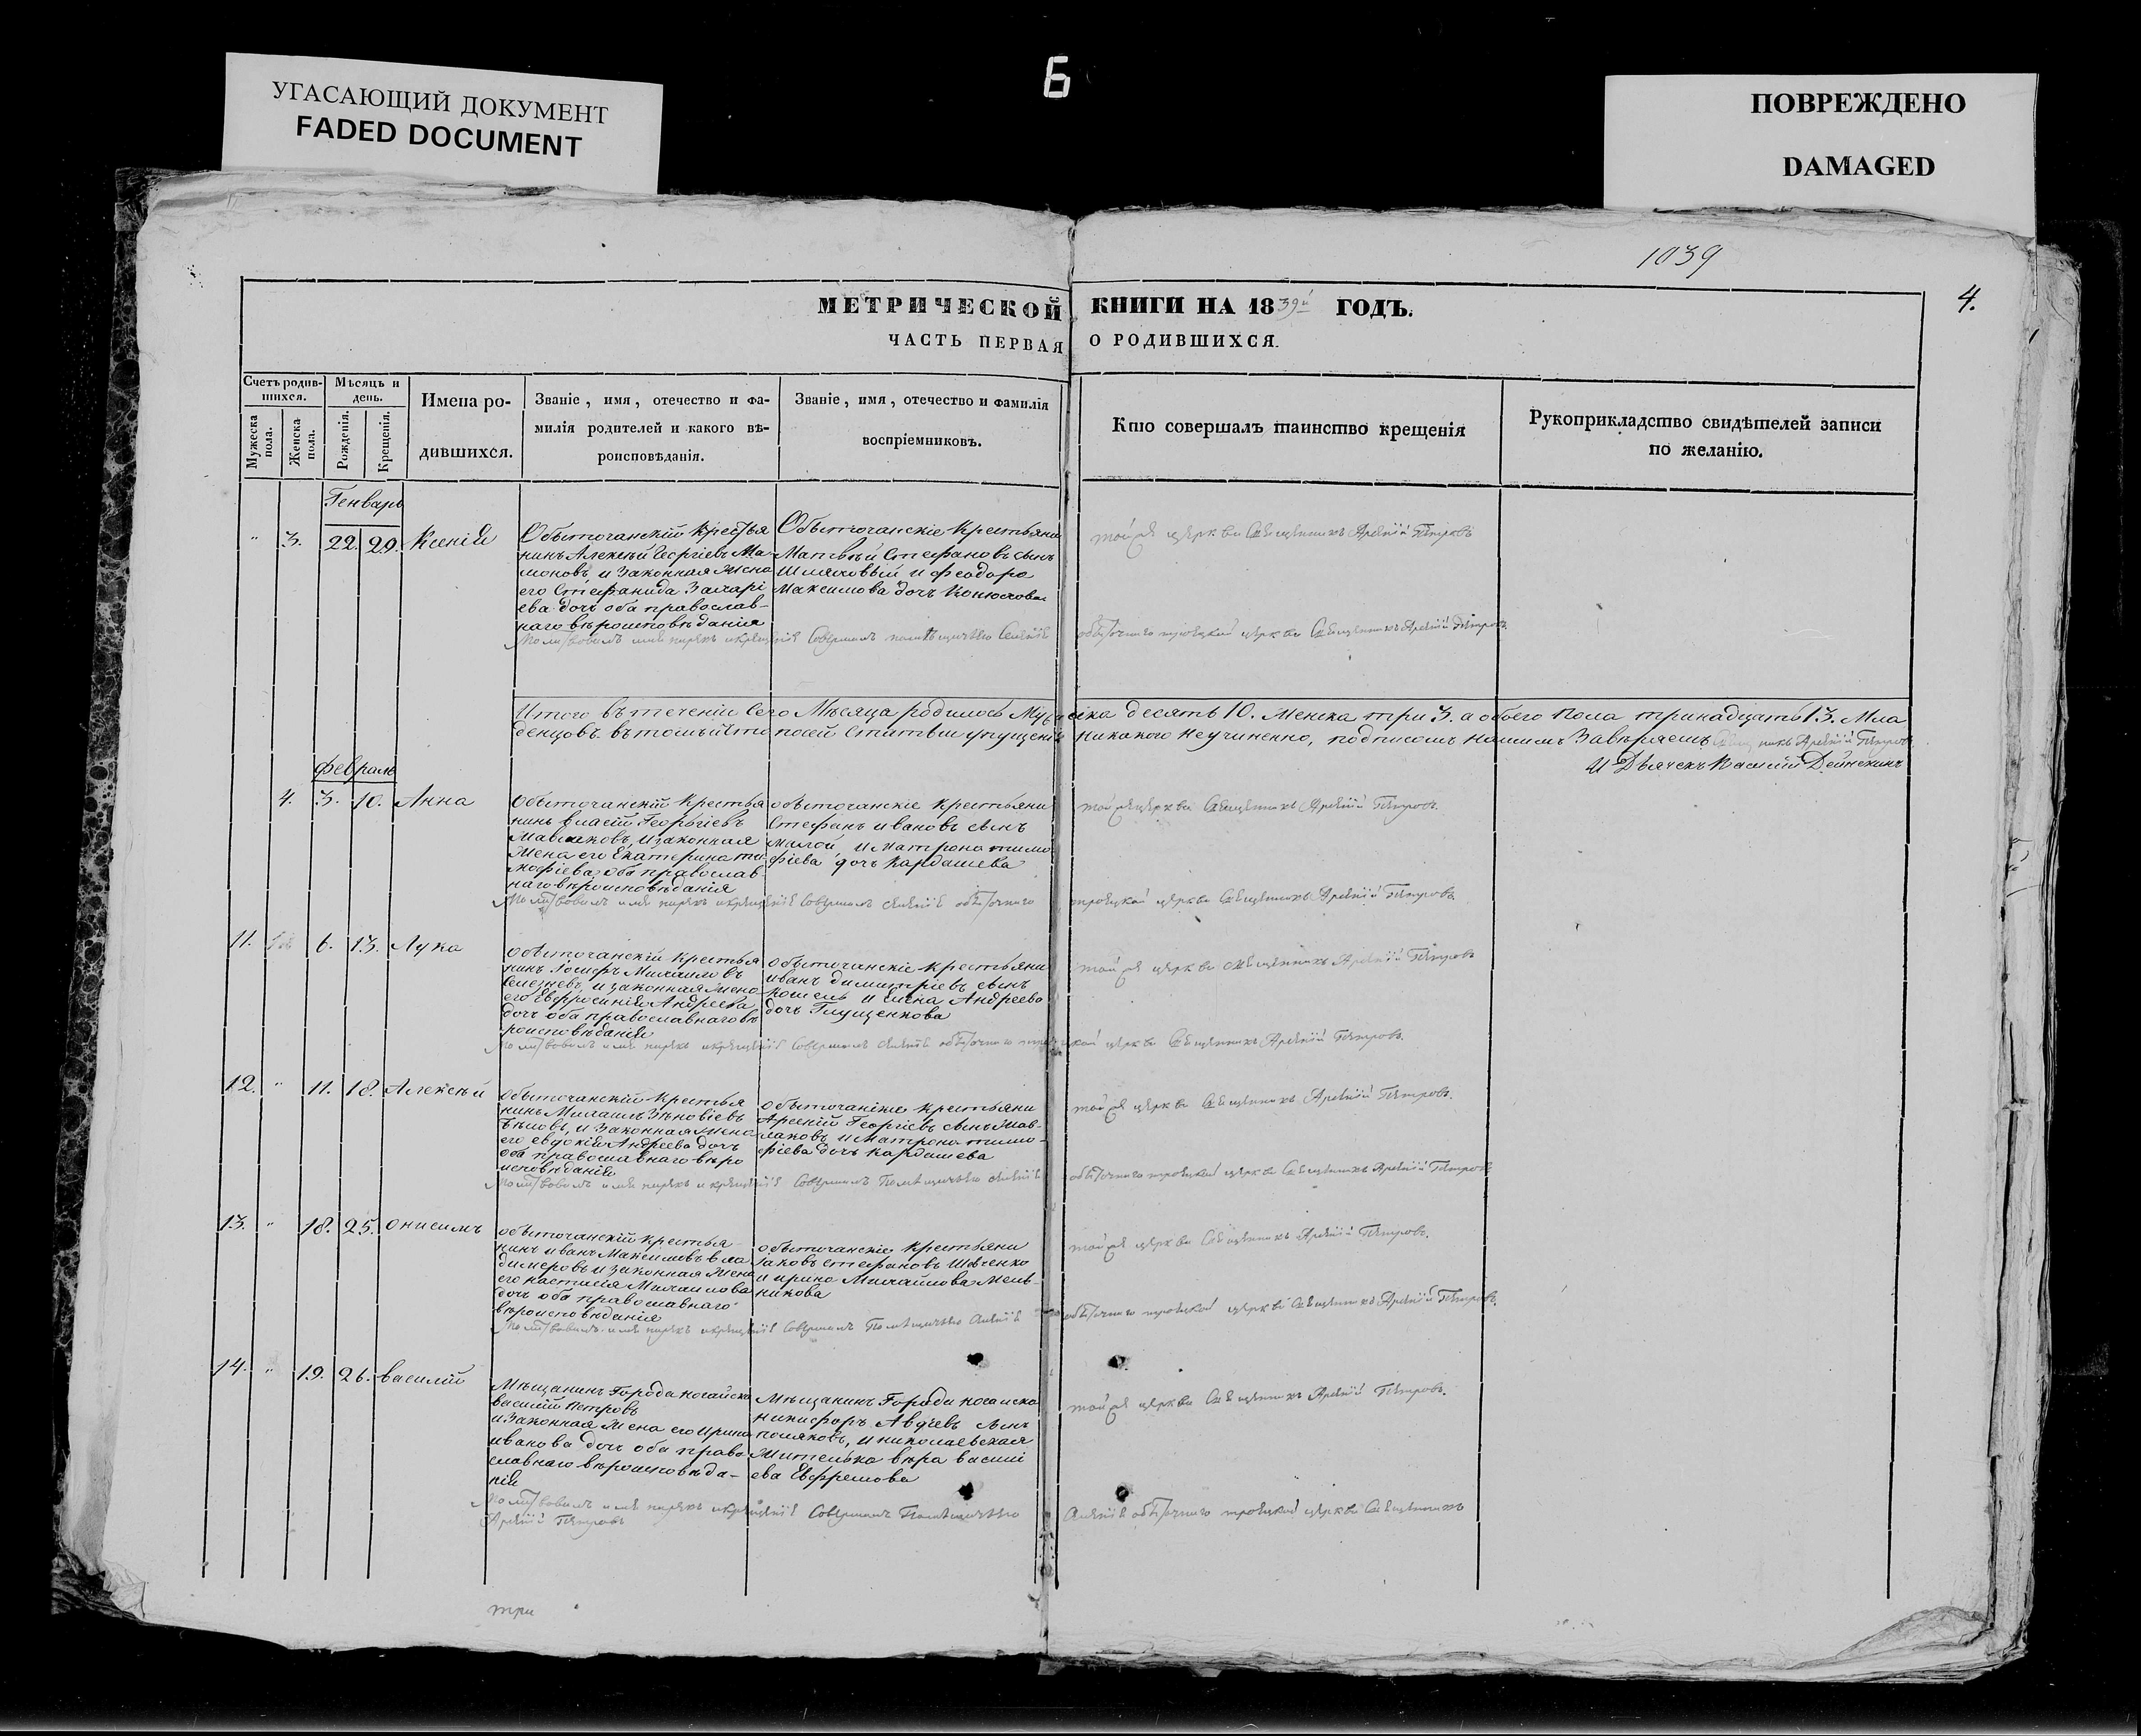 Б
УГАСАЮЩИЙ ДОКУМЕНТ
FADED DOCUMENT
ПОВРЕЖДЕНО
DAMAGED
1039
4.
МЕТРИЧЕСКОЙ КНИГИ НА 1839й ГОДЪ.
ЧАСТЬ ПЕРВАЯ О РОДИВШИХСЯ.
Счетъ родив-
шихся.
Мужеска пола.
Женска пола.
Мѣсяцъ и
день.
Рожденія.
Крещенія.
Имена ро-
дившихся.
Званіе, имя, отечество и фа-
милія родителей и какого вѣ-
роисповѣданія.
Званіе, имя, отечество и фамилія
воспріемниковъ.
Кто совершалъ таинство крещенія
Рукоприкладство свидѣтелей записи
по желанію.
Генварь
" 3. 22. 29. Ксенія
Обыточанскій Крестья
нинъ Алексѣй Георгіевъ Ма-
моновъ, и Законная Жена
его Стефанида Захарі
ева дочь оба православ-
наго вѣроисповѣданія
Обыточанскіе Крестьяни
Матвѣй Стефановъ сынъ
Шляховый и Феодора
Максимова дочь Конюхова
той же церкви Священникъ Арсеній Петровъ
Молитвовалъ имя нарекъ и крещеніе совершалъ помѣщичьяго селенія обыточнаго троецкой церкви Священникъ Арсеній Петровъ.
Итого въ теченіи Сего Мѣсяца родилось Мужеска десять 10. Женска три 3. а обоего пола тринадцать 13. Мла
денцовъ. въ томъ что посей Статьи упущенія никакого неучиненно, подписомъ нашимъ Завѣряемъ Арсеній Петровъ
И Дьячекъ Василій Дейнекинъ
Февраль
4. 3. 10. Анна
Обыточанскій Крестья
нинъ власій Георгіевъ
Мавлаковъ, и законная
Жена его Екатерина ти
мофіева оба православ
наго вѣроисповѣданія
обыточанскіе крестьяни
Стефанъ ивановъ сынъ
малой, и матрона тимо
фіева дочь Кардашева
той же церкви Священникъ Арсеній Петровъ.
Молитвовалъ имя нарекъ и крещеніе совершалъ селенія обыточнаго троецкой церкви Священникъ Арсеній Петровъ
11. 6. 13. Лука
обыточанскій Крестья
нинъ Іосифъ Михаиловъ
Селезневъ, и законная Жена
его Евфросинія Андреева
дочь оба православнаго вѣ
роисповѣданія
обыточанскіе крестьяни
иванъ димитріевъ сынъ
кошель и Елена Андреева
дочь Глущенкова
той же церкви священникъ Арсеній Петровъ
Молитвовалъ имя нарекъ и крещеніе совершалъ селенія обыточнаго троецкой церкви Священникъ Арсеній Петровъ.
12. " 11. 18. Алексѣй
обыточанскій Крестья
нинъ Михаилъ Зѣновіевъ
Бѣловъ, и Законная Жена
его евдокія Андреева дочь
оба православнаго вѣро
исповѣданія
обыточаніже крестьяни
Арсеній Георгіевъ сынъ Мав-
лаковъ, и Матрона тимо-
фіева дочь кардашева
той же церкви Священникъ Арсеній Петровъ.
Молитвовалъ имя нарекъ и крещеніе совершалъ Помѣщичьяго селенія обыточнаго троецкой церкви Священникъ Арсеній Петровъ
13. " 18. 25. Онисимъ
обыточанскій крестья-
нинъ иванъ Максимовъ вла
димеровъ и законная Жена
его настасія Михаилова
дочь оба православнаго
вѣроисповѣданія
обыточанскіе крестьяни
іаковъ стефановъ Шевченко
и ирина Михайлова Мель-
никова
той же церкви Священникъ Арсеній Петровъ.
Молитвовалъ имя нарекъ и крещеніе совершалъ Помѣщичьяго селенія обыточнаго троецкой церкви Священникъ Арсеній Петровъ.
14. " 19. 26. василій
Мѣщанинъ Города ногайска
василій Петровъ
и Законная Жена его Ирина
иванова дочь оба право
славнаго вѣроисповѣда-
нія
Мѣщанинъ Города ногайска
никифоръ Авдѣевъ сынъ
поляковъ, и николаевская
Жителька вѣра васили
ева Ефремова
той же церкви Священникъ Арсеній Петровъ.
Молитвовалъ имя нарекъ и крещеніе совершалъ Помѣщичьяго селенія обыточнаго троецкой церкви Священникъ
Арсеній Петровъ
три